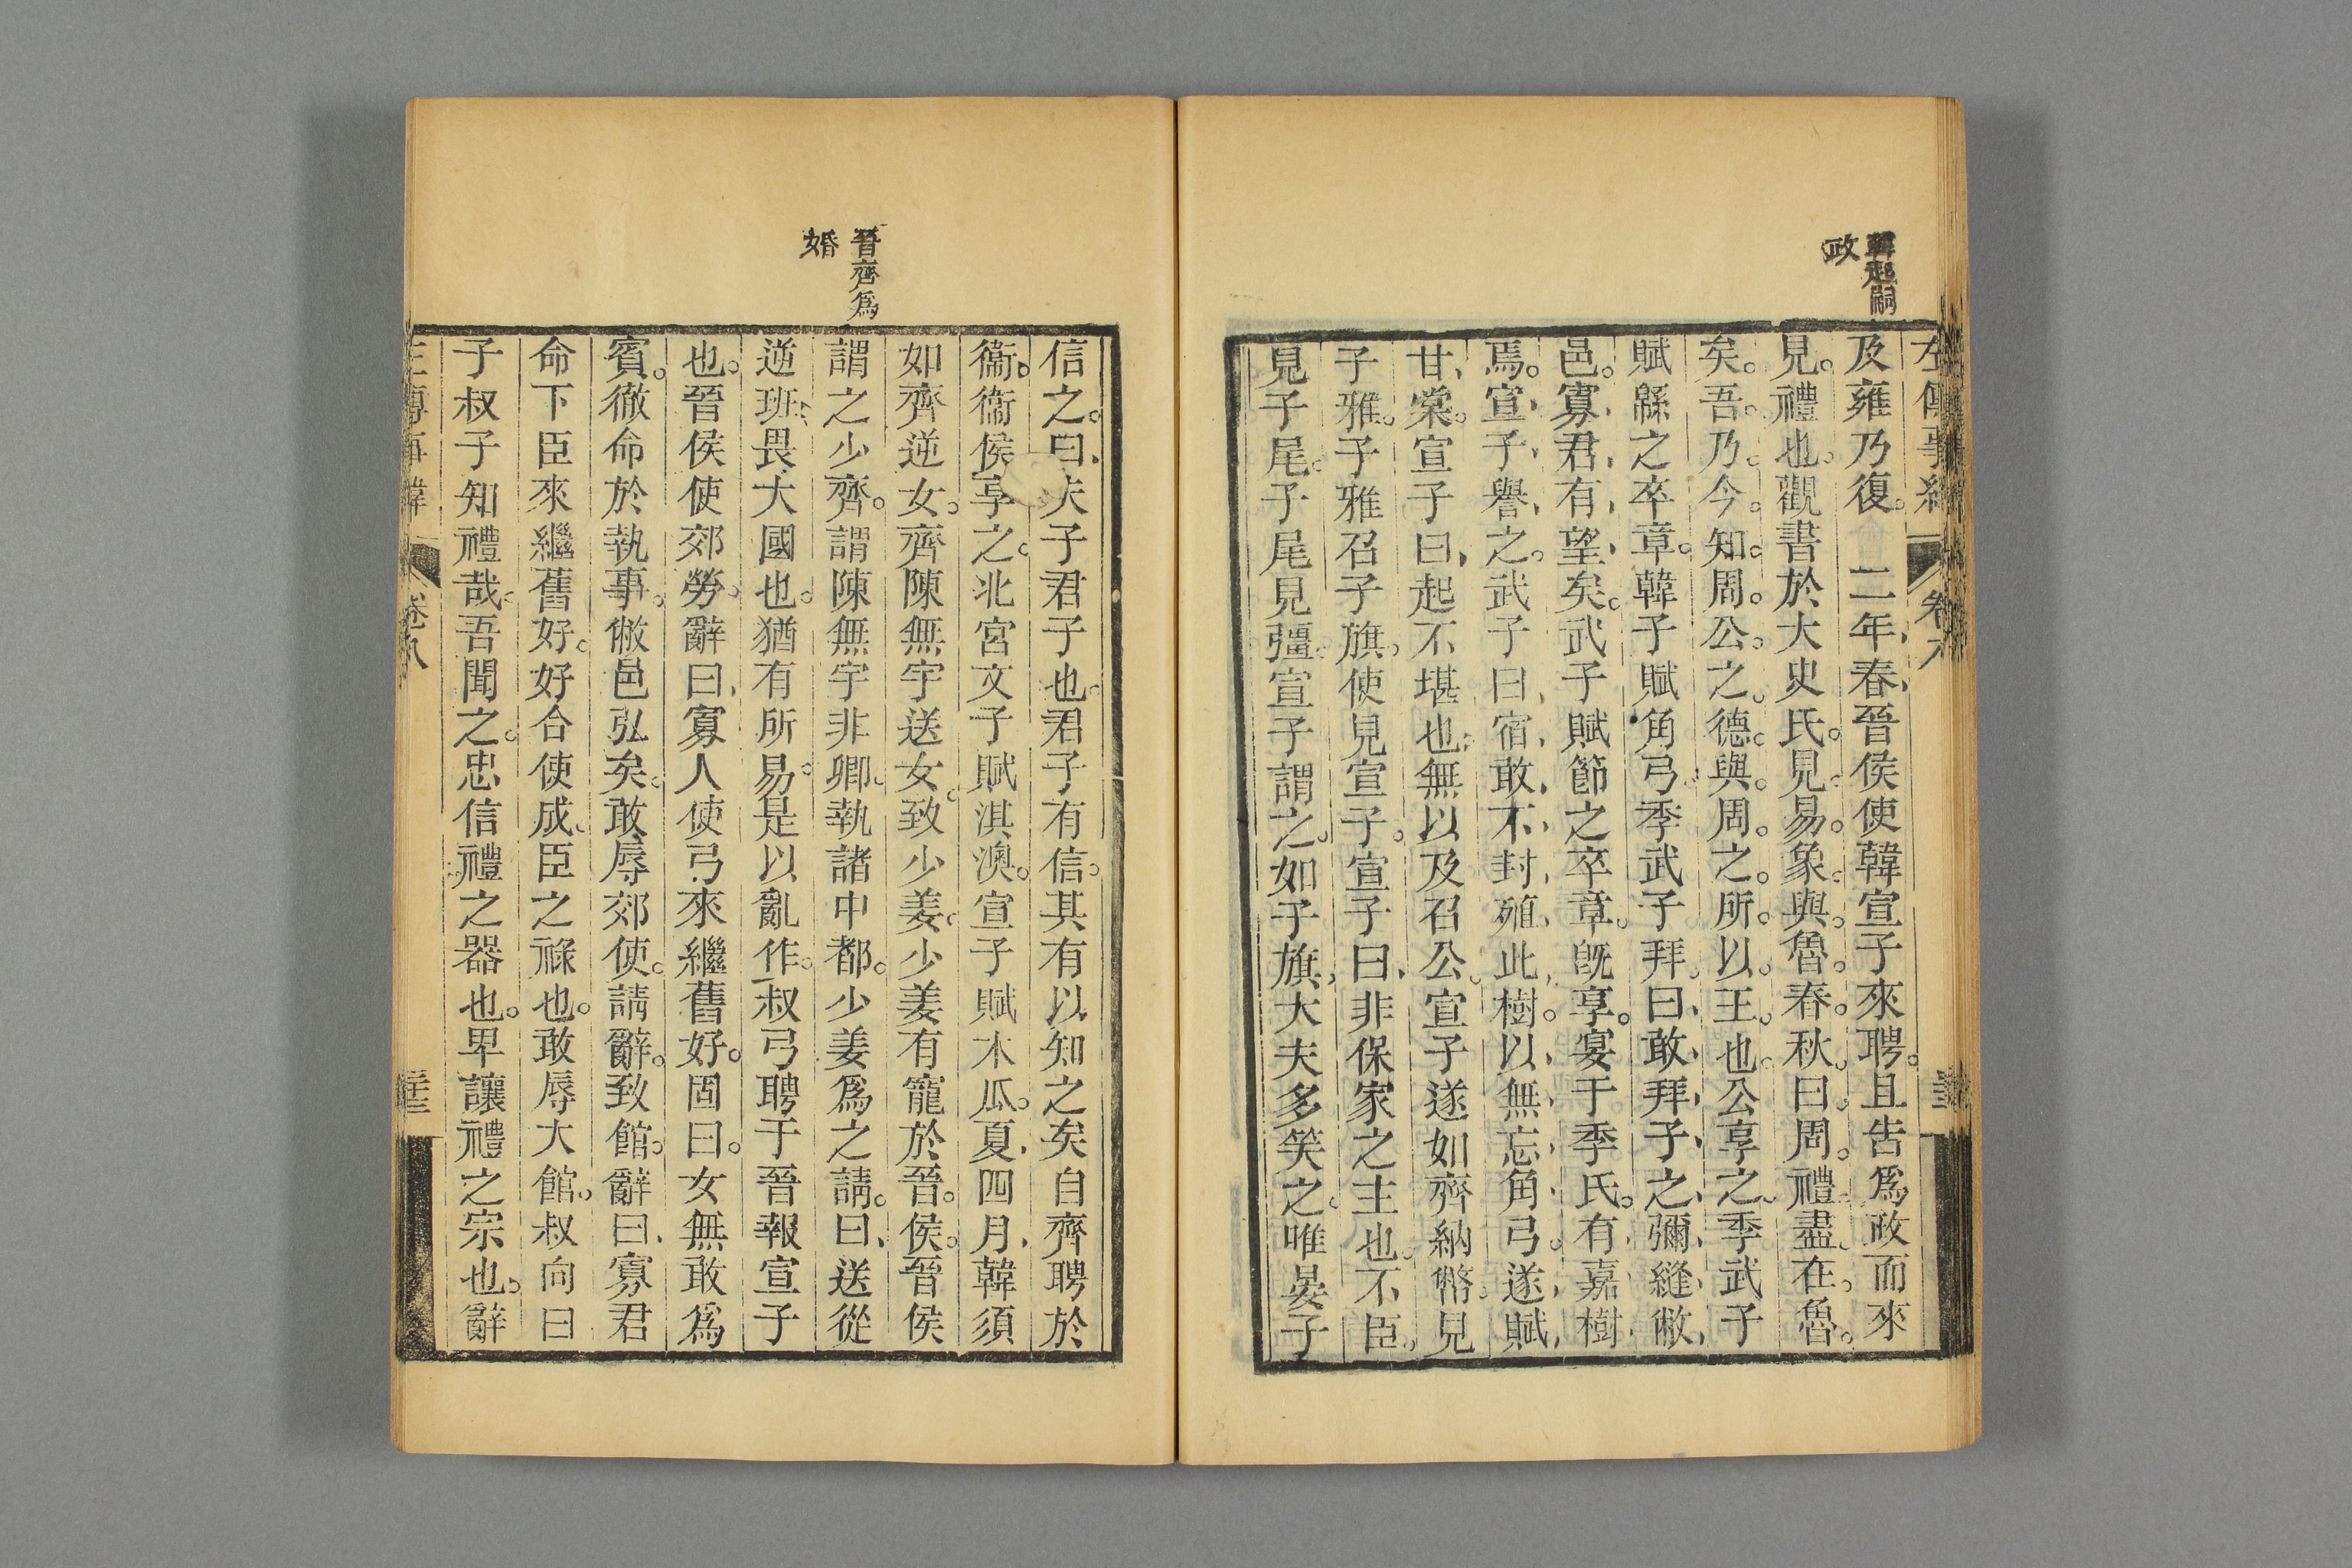 韓起嗣
政
左傳事緯
卷八
及雍乃復。 二年春晉侯使韓宣子來聘。且告爲政而來
見。禮也。觀書於大史氏。見易象與魯春秋曰周禮盡在魯
矣。吾乃今知周公之德與周之所以王也公享之季武子
賦緜之卒章。韓子賦角弓季武子拜曰敢拜子之彌縫敝
邑。寡君有望矣。武子賦節之卒章。旣享。宴于季氏。有嘉樹
焉。宣子譽之。武子曰宿敢不封殖此樹。以無忘角弓。遂賦
甘棠。宣子曰起不堪也無以及召公。宣子遂如齊納幣。見
子雅。子雅召子旗。使見宣子。宣子曰非保家之主也。不臣。
見子尾。子尾見彊。宣子謂之。如子旗大夫多笑之。唯晏子
晉齊爲
婚
信之。曰夫子君子也。君子有信。其有以知之矣自齊聘於
衞。衞侯享之。北宮文子賦淇澳。宣子賦木瓜。夏四月韓須
如齊逆女。齊陳無宇送女。致少姜。少姜有寵於晉。侯。晉侯
謂之少齊。謂陳無宇非卿。執諸中都。少姜爲之請。曰送從
逆班畏大國也。猶有所易。是以亂作。叔弓聘于晉報宣子
也。晉侯使郊勞。辭曰寡人使弓來繼舊好。固曰。女無敢爲
賓。徹命於執事。敝邑弘矣。敢辱郊使。請辭。致館。辭曰寡君
命下臣來繼舊好。好合使成。臣之祿也。敢辱大館。叔向曰
子叔子知禮哉。吾聞之。忠信禮之器也。卑讓禮之宗也。辭
卷八